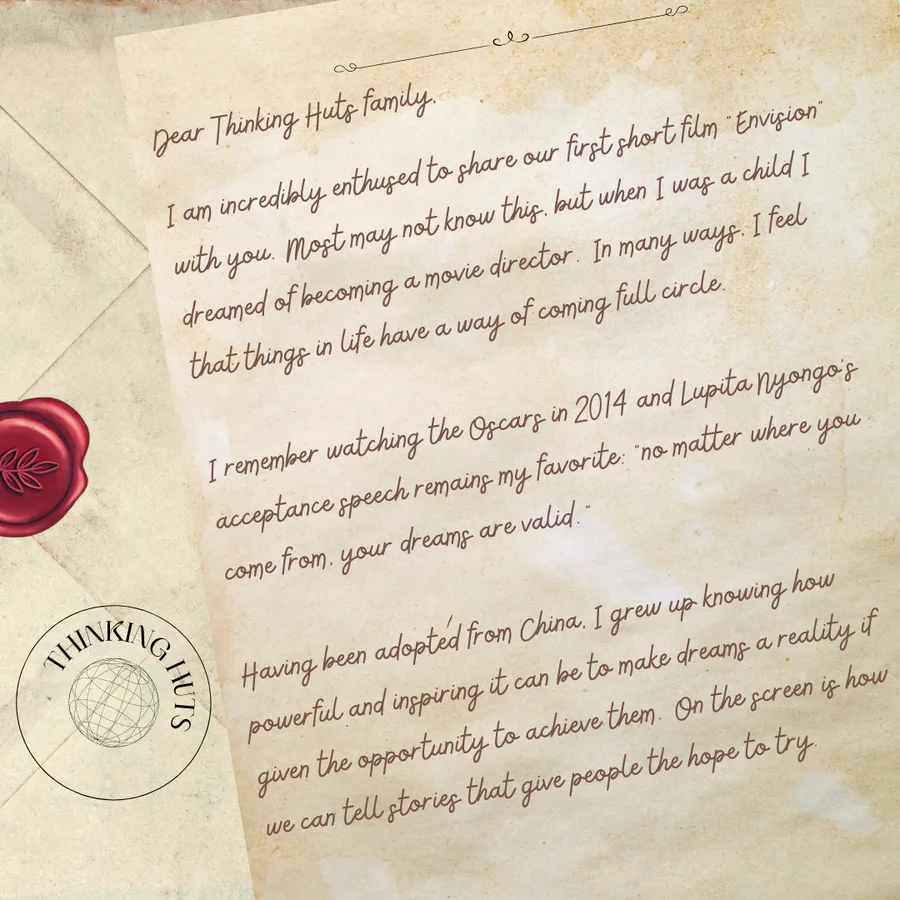 Dear Thinking Huts family,
I am incredibly enthused to share our first short film "Envision"
with you. Most may not know this, but when I was a child I
dreamed of becoming a movie director. In many ways, I feel
that things in life have a way of coming full circle.
I remember watching the Oscars in 2014 and Lupita Nyongo's
acceptance speech remains my favorite: "no matter where you
come from, your dreams are valid."
Having been adopted from China, I grew up knowing how
powerful and inspiring it can be to make dreams a reality if
given the opportunity to achieve them. On the screen is how
we can tell stories that give people the hope to try.
THINKING HUTS